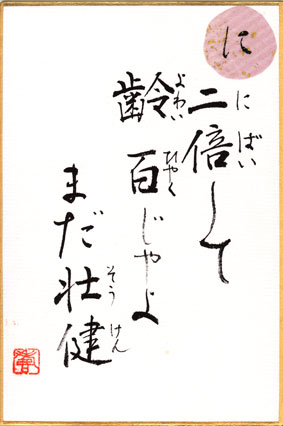 に
二倍して
にばい
齢百じゃよ
よわい
ひゃく
まだ壮健
そうけん